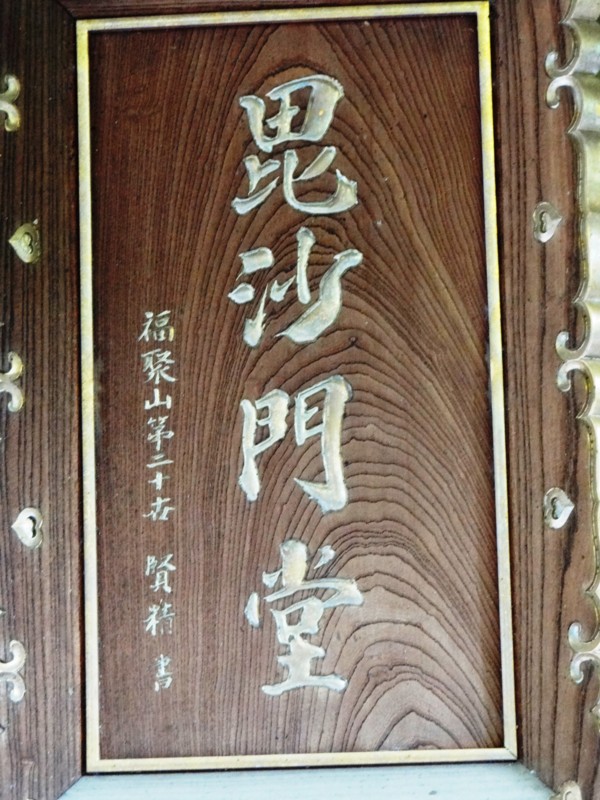 毘沙門堂
福聚山第二十世 賢精 書